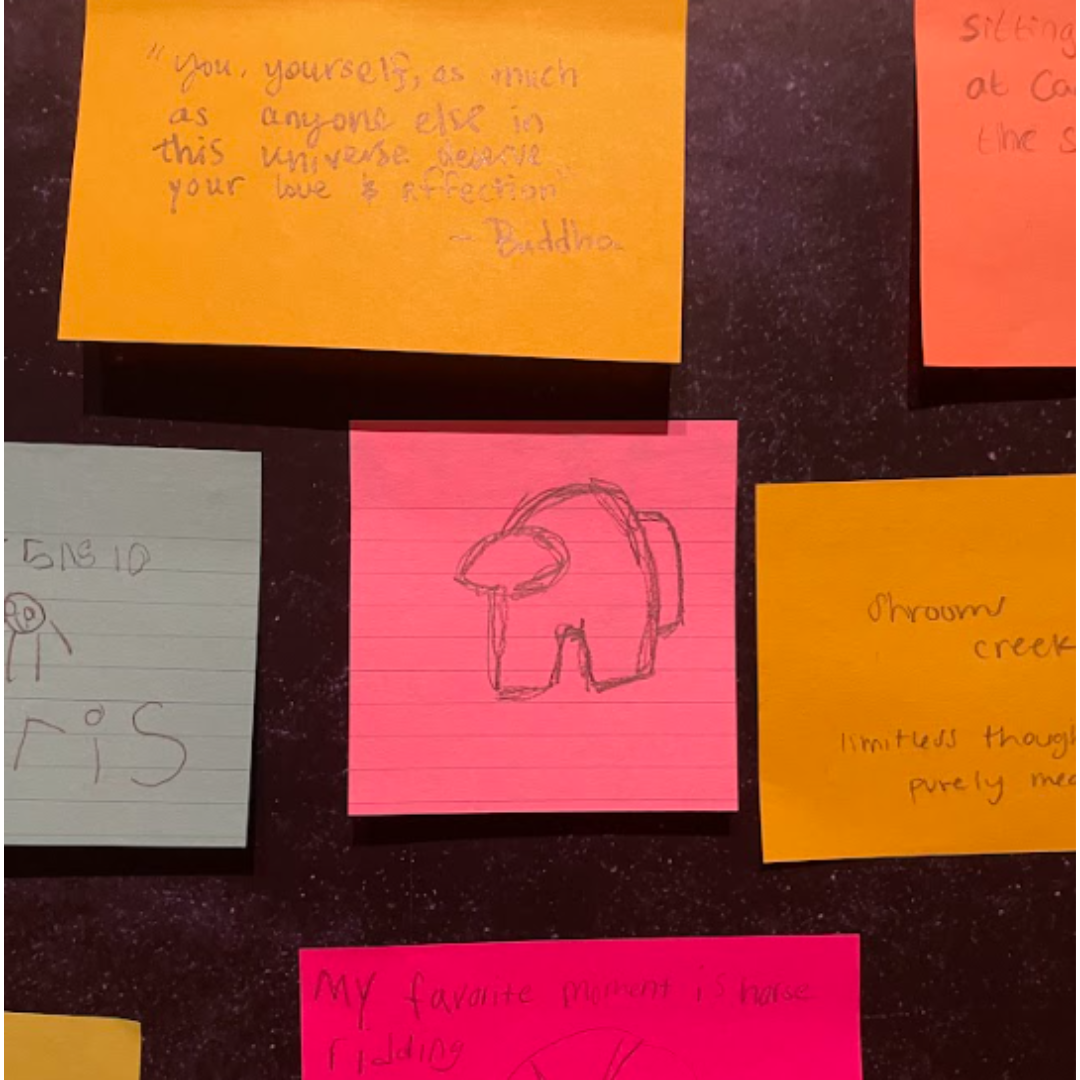 "You, yourself, as much
as anyone else in
this universe deserve
your love & affection"
- Buddha
sitting
at Ca
the s
ris
Shrooms
creek
limitless though
purely med
My favorite moment is horse
ridding